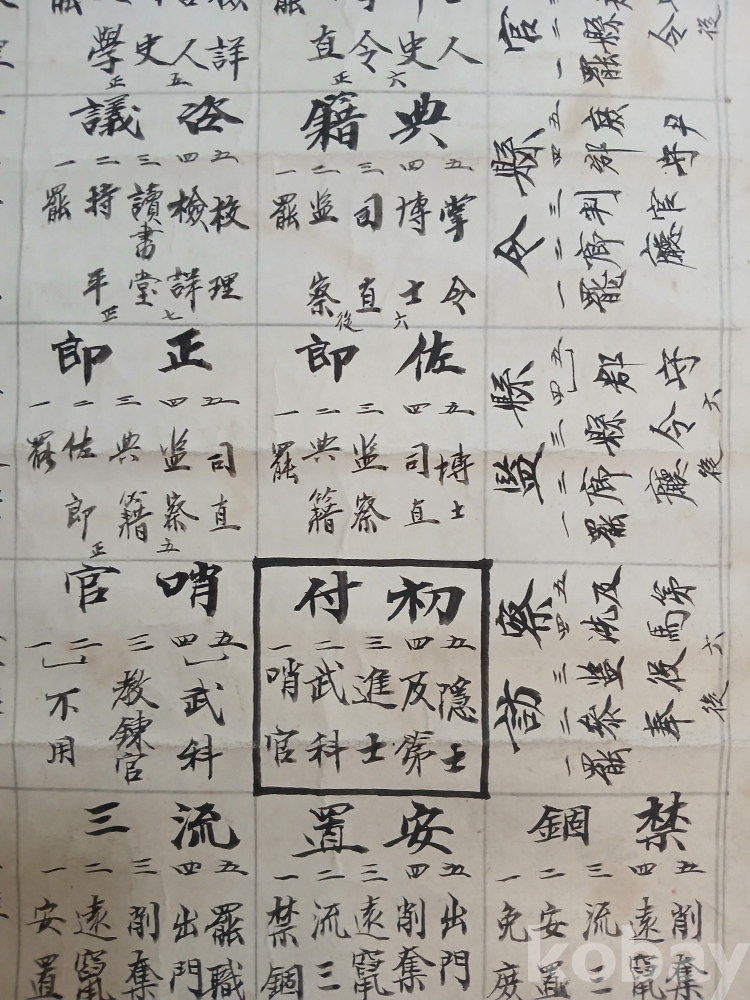 官
一二
罷縣令
後
人
史
令
直
詳
人
史
學
縣令
五四三二一
府尹
郡守
判官
廊廳
罷
正六
典籍
五四三二一
掌令
博士
司直
監察
罷
正五
咨議
五四三二一
校理
檢詳
讀書堂
持平
罷
後六
縣監
五四三二一
郡守
縣令
廊廳
罷
後六
佐郎
五四三二一
博士
司直
監察
典籍
罷
正七
正郎
五四三二一
司直
監察
典籍
佐郎
罷
後六
察訪
五四三二一
及第
洗馬
監役
參奉
罷
初付
五四三二一
隱士
及第
進士
武科
哨官
正五
哨官
五四三二一
武科
教鍊官
不用
禁錮
五四三二一
削奪
遠竄
流三
安置
免庶
安置
五四三二一
出門
削奪
遠竄
流三
禁錮
流三
五四三二一
罷職
出門
削奪
遠竄
安置
kobay